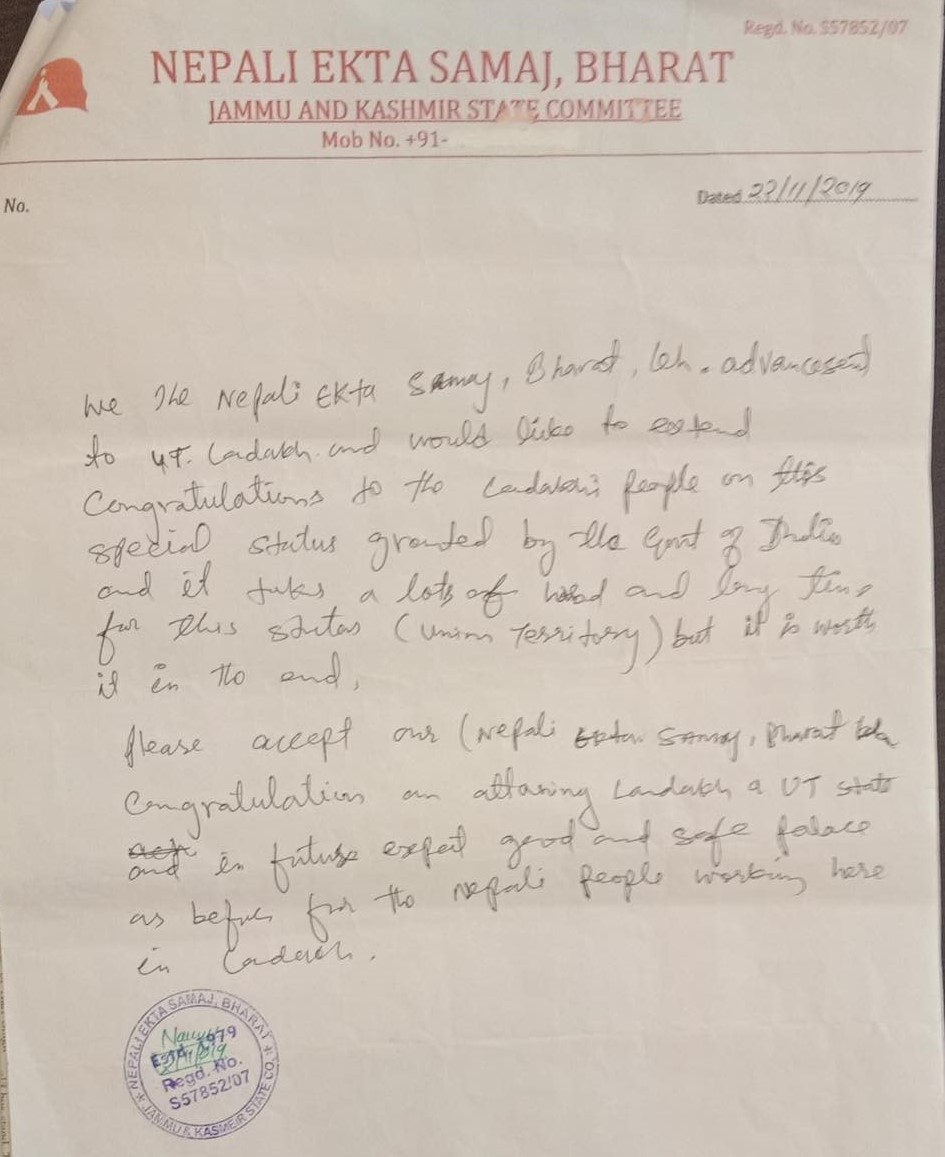 Regd. No. S57852/07
NEPALI EKTA SAMAJ, BHARAT
JAMMU AND KASHMIR STATE COMMITTEE
Mob No. +91-
No.
Dated 22/11/2019
We The Nepali EKTA Samaj, Bharat, Leh.
to UT. Ladakh. and would like to extend
Congratulations to the Ladakhi people on this
special status granted by the Govt of India
and it takes a lots of and long time
for this status (Union Territory) but it is worth
it in the end,
Please accept our (Nepali Ekta Samaj, Bharat Leh
Congratulation on attaning Landakh a UT state
and in future expect good and safe palace
as before for the Nepali people working here
in Ladakh.
NEPALI EKTA SAMAJ, BHARAT
Estd. 1979
Regd. No.
S57852/07
JAMMU & KASMEIR STATE CO.